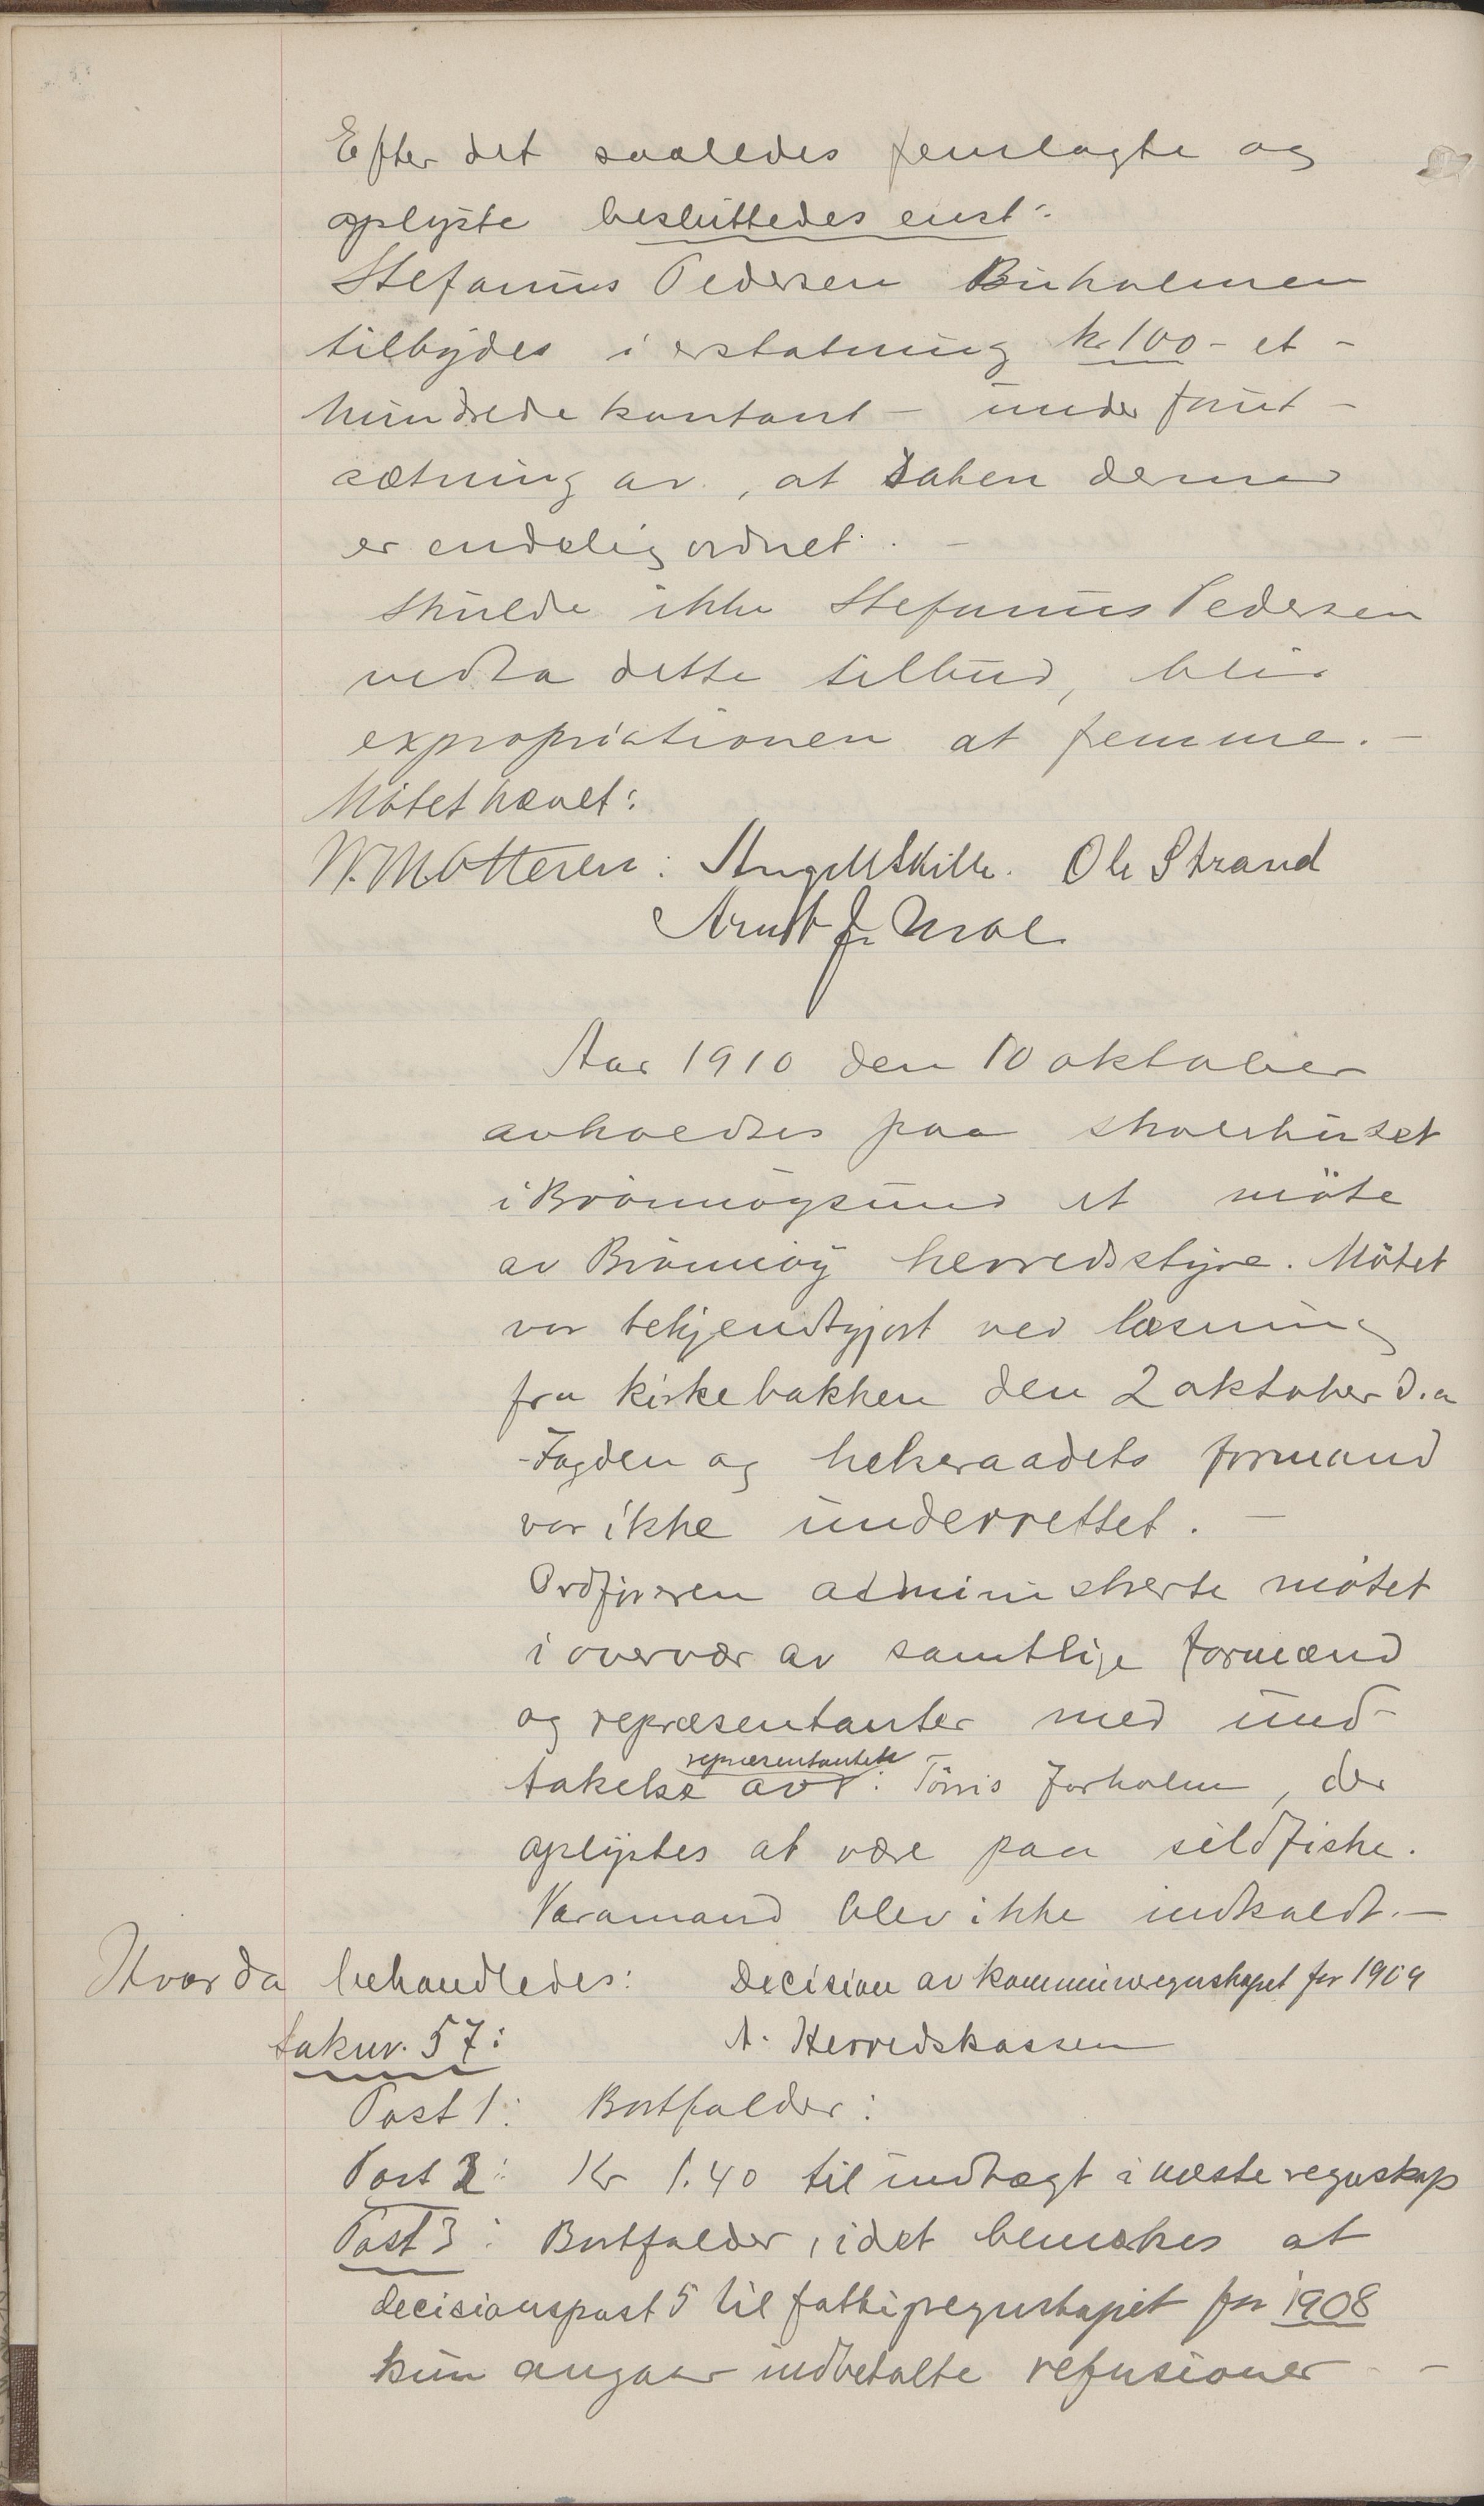 Efter det saaledes femlagte og
oplyste besluttedes enst:
Stefanus Pedersen Buholmen
tilbydes i erstatning kr 100 - et -
hundrede kontant - under forut -
sætning av, at saken dermed
er endelig ordnet. -
Skulde ikke Stefanus Pedersen
vedta dette tilbud, blir
expropriationen at femme. -
Møtet hævet:
W. M Ottesen. Ole Strand
Arnt J.
Aar 1910 den 10 oktober
avholdtes paa skolehuset
i Brönnöysund et möte
av Brönnöy herredsstyre. Møtet
var bekjendtgjort ved læsning
fra kirkebakken den 2 oktober d.a
Fogden og helseraadets formand
var ikke underrettet. -
Ordføreren administrerte møtet
i overvær av samtlige formænd
og repræsentanter med und-
takelse av repræsentanten: Tönis Torholm, der
oplystes at være paa sildfiske.
Varamand blev ikke indkaldt. -
Hvorda behandledes: Decision av kommuneregnskapet for 1909
saknr. 57: A. Herredskassen
Post 1: Bortfalder:
Post 2: Kr 1.40 til indtægt i næste regnskap
Post 3: Bortfalder, idet bemerkes at
decisionspost 5 til fattigregnskapet for 1908
kun angaar indbetalte refusioner - -